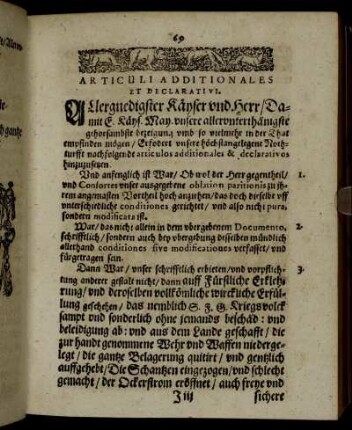 69
ARTICULI ADDITIONALES
ET DECLARATIVI.
ALlergnedigster Käyser vnd Herr/Da-
mit E. Käys. May. vnsere allervnterthänigste
gehorsambste bezeigung vmb so vielmehr in der That
empfinden mögen/ Erfodert vnsere höchstangelegene Noth-
turfft nachfolgende articulos additionales & declarativos
hinzuzusetzen.
Vnd anfenglich ist War/ Ob wol der Herr gegentheil/
und Consorten vnser ausgegebene oblation paritionis zu ih-
rem angemasten Vortheil hoch anziehen/das doch dieselbe vff
vnterschiedliche conditiones gerichtet/ vnd also nicht pura,
sondern modificata ist.
1.
War/das nicht allein in dem vbergebenem Documento,
schrifftlich/ sondern auch bey vbergebung desselben mündlich
allerhand conditiones sive modificationes verfasset/ vnd
fürgetragen sein.
2.
Dann War/ vnser schrifftlich erbieten/vnd verpflich-
tung anderer gestalt nicht/ dann auff Fürstliche Erkleh-
rung/ vnd deroselben vollkömliche wirckliche Erfül-
lung geschehen/ das nemblich S. F. G. Kriegsvolck
sampt vnd sonderlich ohne jemands beschäd: vnd
beleidigung ab: vnd aus dem Lande geschafft/ die
zur handt genommene Wehr vnd Waffen niederge-
legt/ die gantze Belagerung quitirt/ vnd gentzlich
auffgehebt/Die Schantzen eingezogen/vnd schlecht
gemacht/ der Ockerstrom eröffnet/ auch freye vnd
3.
J iij
sichere